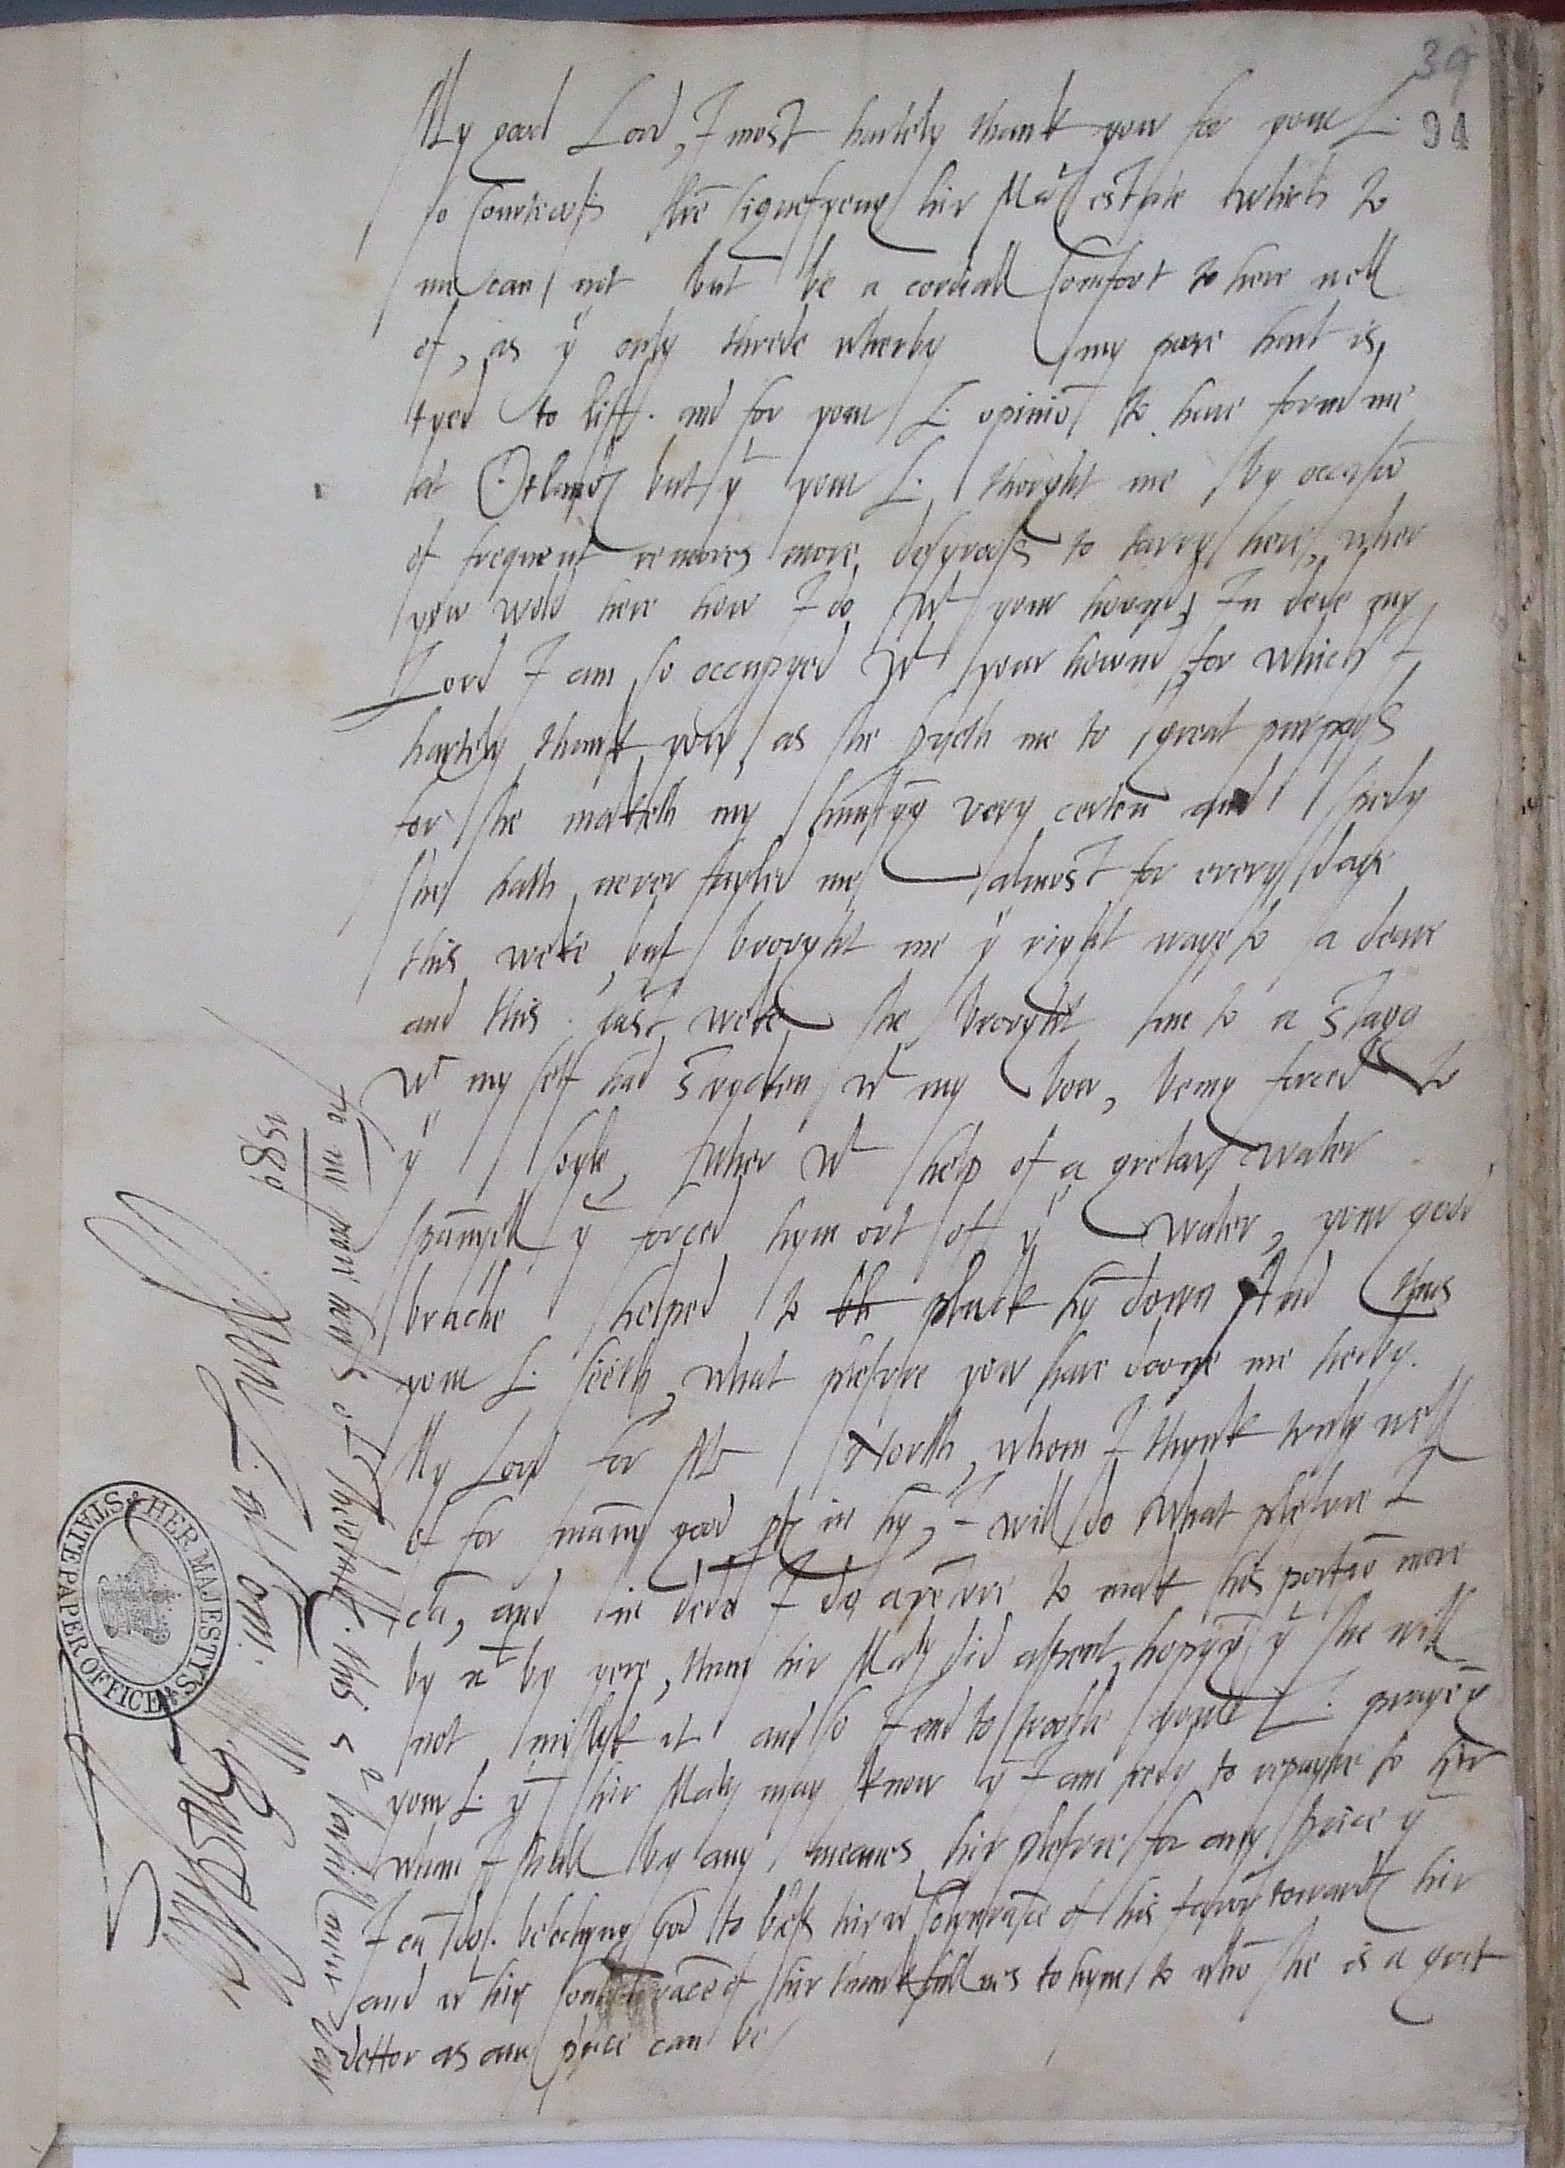 39
94
My good Lord, I most hartely thank yow for your L.
so Courteoss lr̃e signefyeng hir Maty estate which to
me can not but be a cordiall Comfort to here well
of, as yͤ only threde wherby my poore hart is
tyed to liff. and for your L. opiniō to have fownd me
at Otlands but yͭ your L. thought me by occasiō
of frequent removes more desyrooss to tarry here, wher
yow wold here how I do wͭ your hownd, In dede my
Lord I am so occupyed wͭ your hownd for which I
hartely thank yow, as she putteth me to great
for she maketh my huntȳg very certen and spedy
she hath never fayled me almost for every daye
this weke, but browght me yͤ right waye to a deare
and this last weke she browght me to a stagg
wͭ my self had strycken wͭ my bow, being forced to
yͤ soyle, wher wͭ help of a gretar water
spannyell yͭ forced hym out of yͤ water, your good
brache helped to pluck hȳ down And thus
your L. seeth what plesure yow have doone me herby.
My Lord for Mr North, whom I thynk truly well
of for many good in hȳ, I will do what plesure I
cā, and in dede I do to mak his portiō more
by by yere, than hir Maty did assent, hopȳg yͭ she will
not mislyk it and so I end to trooble your L. prayēg
your L. yͭ hir Maty may know yͭ I am redy to repayre to hir
whan I shall by any meanes hir plesure for any service yͭ
I cā do. beseching God to bless hir wͭ Contynuāce of his favor towards hir
and wͭ hir Contynuāce of hir thankfullnes to hym to whō she is a gret
dettor as any price can be
frō my poore howss at Theobalds. this
1589
Your L. at
W. Burghley
HER MAJESTY'S STATE PAPER OFFICE